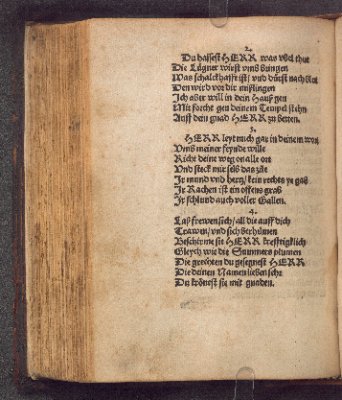 2.
Du hassest HERR was vbel thut
Die Lügner wirst vmb bringen
Was schalckhafft ist / vnd dürst nach blut
Den wird vor dir mißlingen
Ich aber will in dein Hauß gen
Mit forcht gen deinem Tempel stehn
Auff dein gnad HERR zu betten.
3.
HERR leyt mich gar in deinem weg
Vmb meiner feynde wille
Richt deine weg on alle
Vnd steck mir selb das zil
Ir mund vnd hertz / kein rechts ye gaß
Ir Rachen ist ein offens graß
Ir schlund auch voller Gallen.
4.
Laß frewen sich / all die auff dich
Trawen / vnd sich berhümen
Beschirme sie HERR krefftigklich
Gleych wie die Summers plumen
Die gerechten du gesegnest HERR
Die deinen Namen lieben sehr
Du krönest sie mit gnaden.